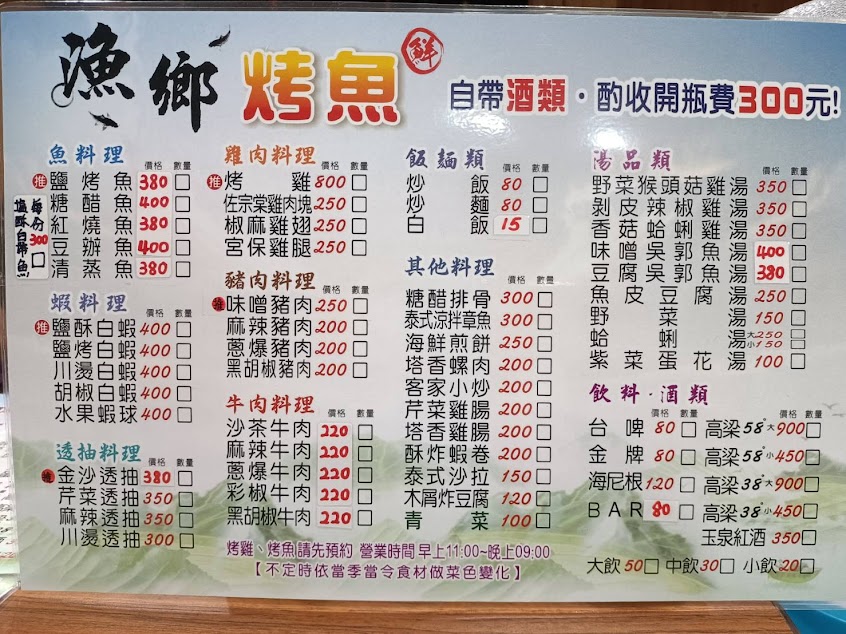 漁鄉 烤魚 鮮
自帶酒類·酌收開瓶費300元!
魚料理 價格 數量
推 鹽烤魚 380 □
糖醋魚 400 □
紅燒魚 380 □
豆瓣魚 400 □
清蒸魚 380 □
每份300 □
塩酥白帶魚
蝦料理 價格 數量
推 鹽酥白蝦 400 □
鹽烤白蝦 400 □
川燙白蝦 400 □
胡椒白蝦 400 □
水果蝦球 400 □
透抽料理 價格 數量
推 金沙透抽 380 □
芹菜透抽 350 □
麻辣透抽 350 □
川燙透抽 300 □
雞肉料理 價格 數量
推 烤雞 800 □
佐宗棠雞肉塊 250 □
椒麻雞翅 250 □
宮保雞腿 250 □
豬肉料理 價格 數量
推 味噌豬肉 250 □
麻辣豬肉 200 □
蔥爆豬肉 200 □
黑胡椒豬肉 200 □
牛肉料理 價格 數量
沙茶牛肉 220 □
麻辣牛肉 220 □
蔥爆牛肉 220 □
彩椒牛肉 220 □
黑胡椒牛肉 220 □
飯麵類 價格 數量
炒飯 80 □
炒麵 80 □
白飯 15 □
其他料理 價格 數量
糖醋排骨 300 □
泰式涼拌章魚 300 □
海鮮煎餅 250 □
塔香螺肉 200 □
客家小炒 200 □
芹菜雞腸 200 □
塔香雞腸 200 □
酥炸蝦卷 200 □
泰式沙拉 150 □
木屑炸豆腐 120 □
青菜 100 □
湯品類 價格 數量
野菜猴頭菇雞湯 350 □
剝皮辣椒雞湯 350 □
香菇蛤蜊雞湯 350 □
味噌吳郭魚湯 400 □
豆腐吳郭魚湯 380 □
魚皮豆腐湯 250 □
野菜湯 150 □
蛤蜊湯 大250 □ 小150 □
紫菜蛋花湯 100 □
飲料·酒類
價格 數量 價格 數量
台啤 80 □ 高梁58°大900 □
金牌 80 □ 高梁58°小450 □
海尼根 120 □ 高梁38°大900 □
BAR 80 □ 高梁38°小450 □
玉泉紅酒 350 □
大飲50 □ 中飲30 □ 小飲20 □
烤雞、烤魚請先預約 營業時間早上11:00~晚上09:00
【不定時依當季當令食材做菜色變化】